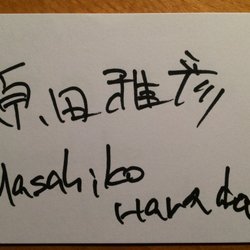 原田雅彦
Masahiko
Harada